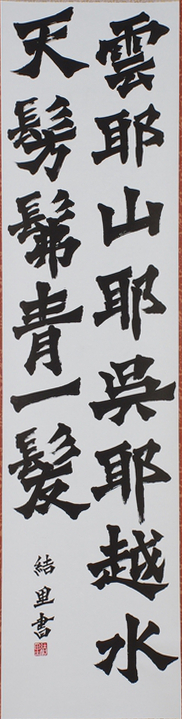 雲耶山耶呉耶越水
天髣髴青一髪
結里書